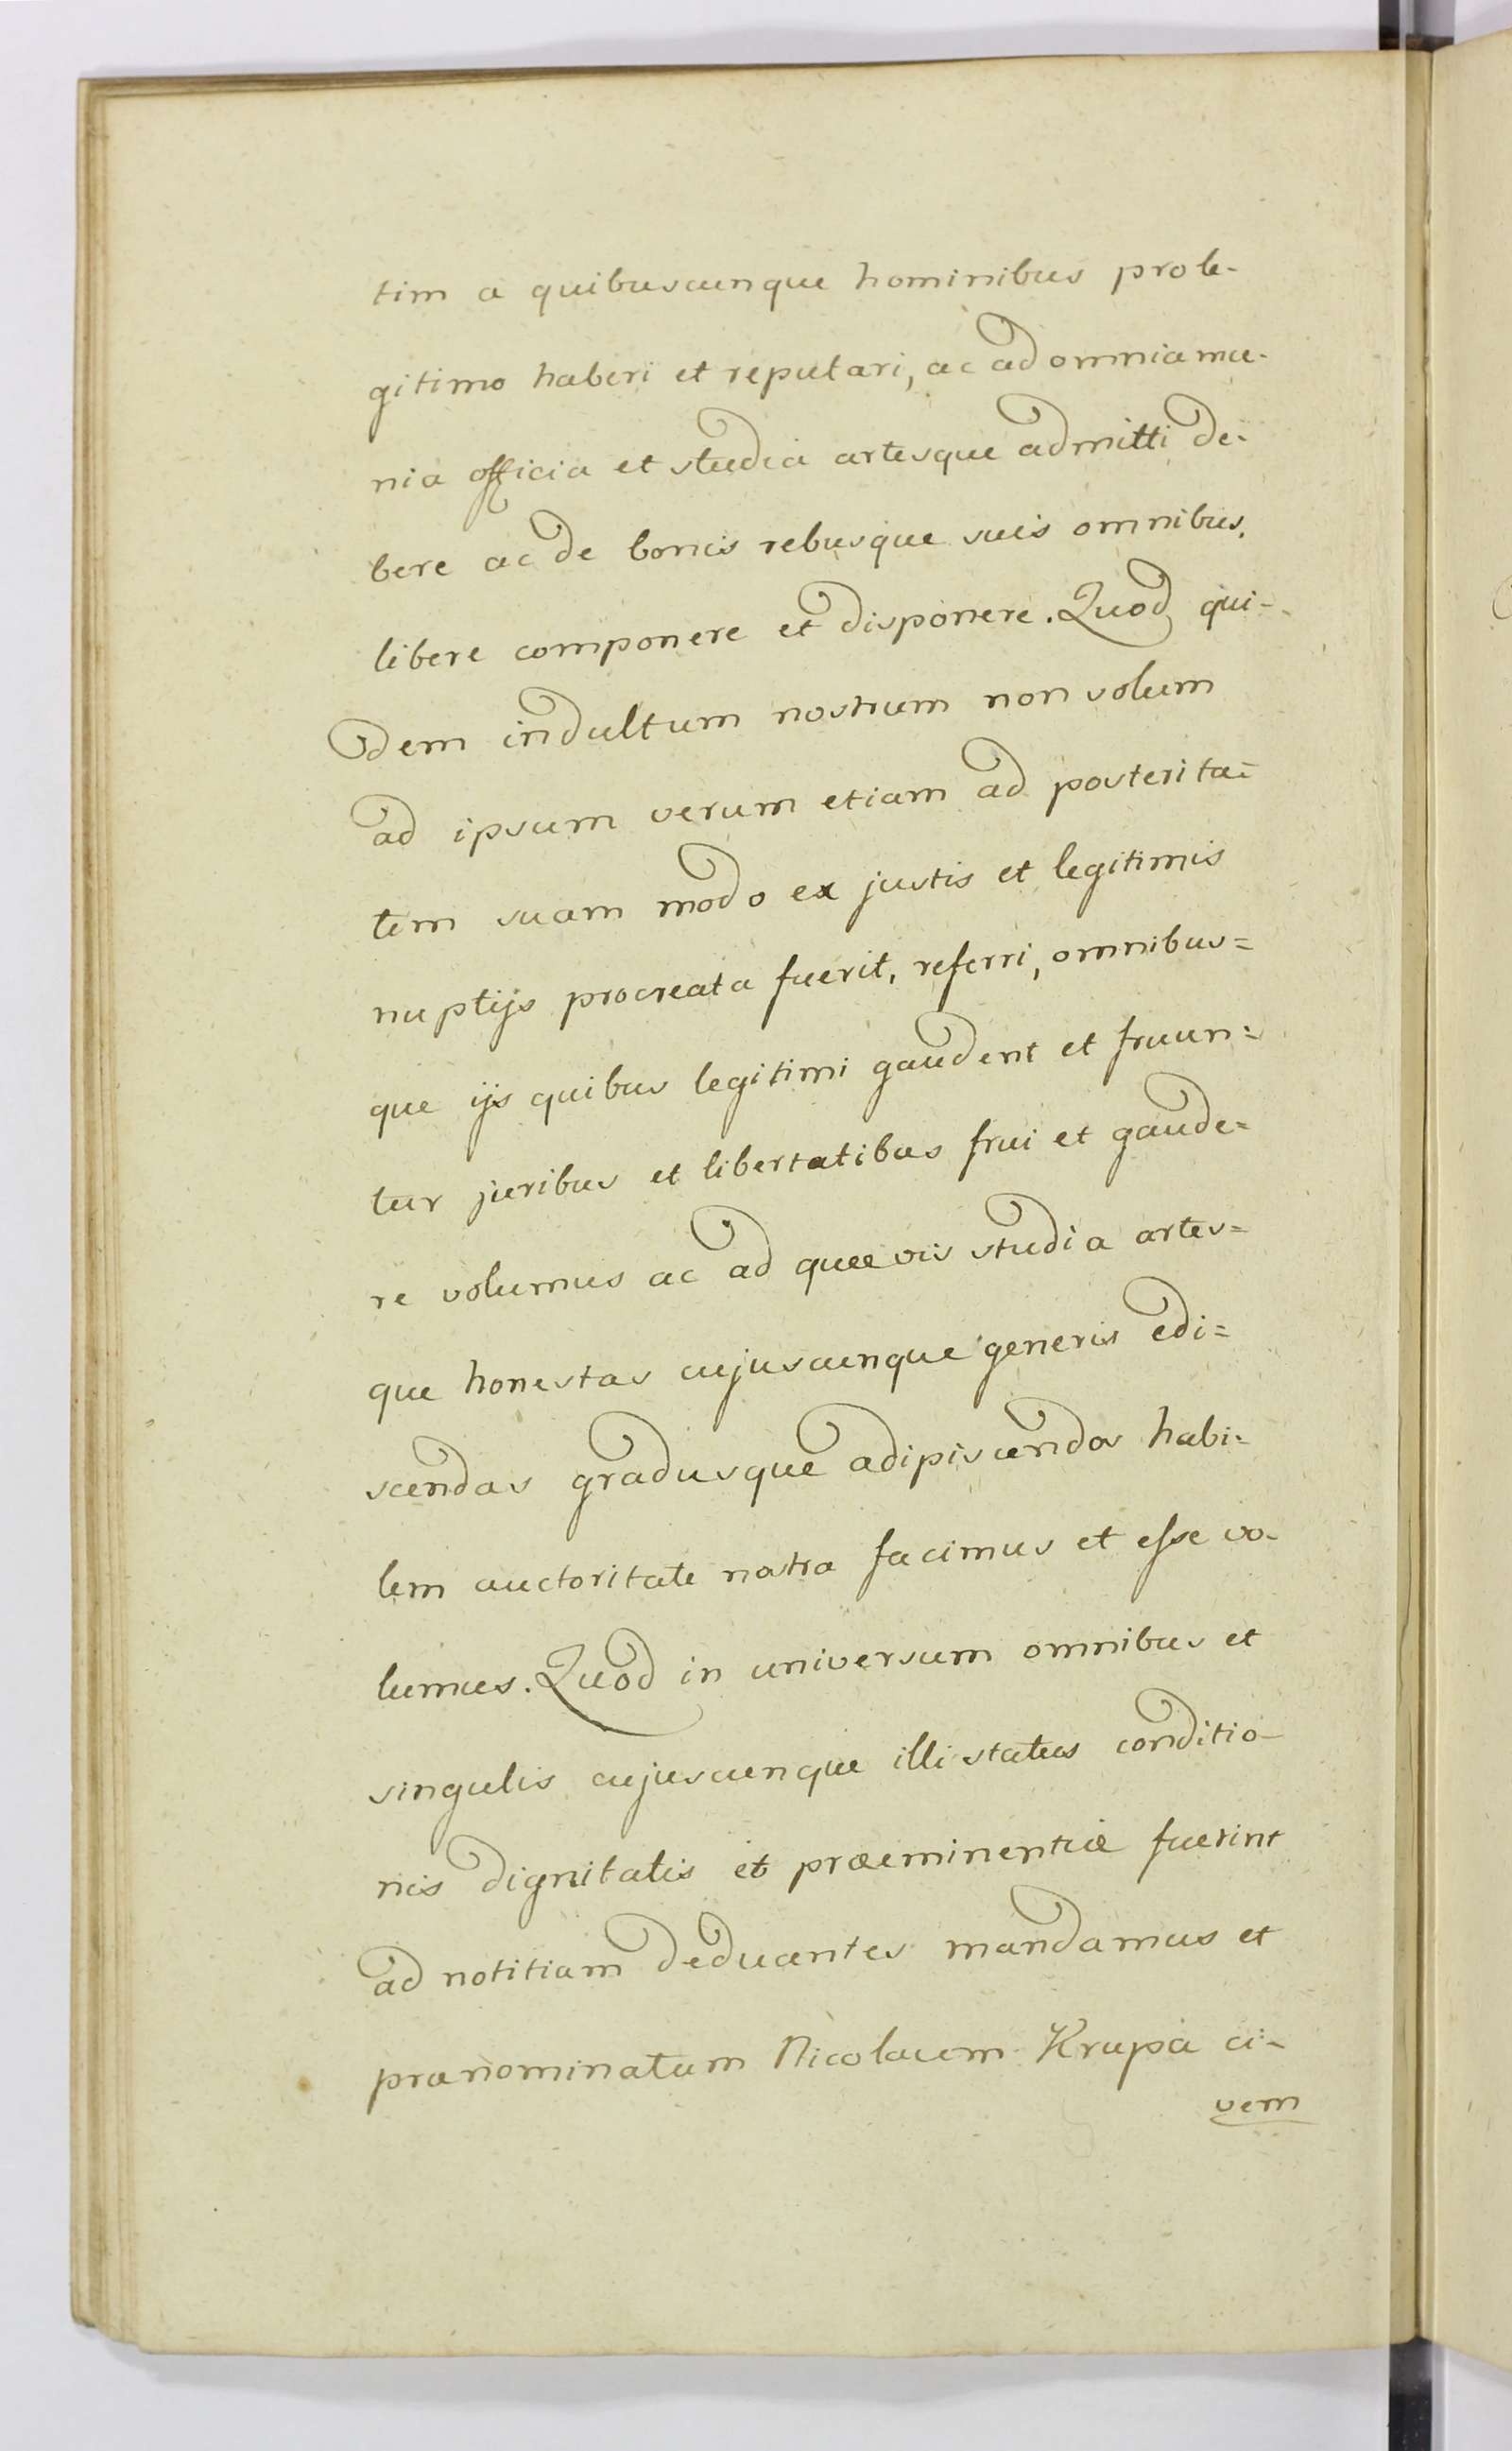 tim a quibuscunque hominibus pro le-
gitimo haberi et reputari, ac ad omnia mu-
nia officia et studia artesque admitti de-
bere ac de bonis rebusque suis omnibus,
libere componere et disponere. Quod qui-
dem indultum nostrum non solum
ad ipsum verum etiam ad posterita=
tem suam modo ex justis et legitimis
nuptijs procreata fuerit, referri, omnibus=
que ijs quibus legitimi gaudent et fruun=
tur juribus et libertatibus frui et gaude=
re volumus ac ad quævis studia artes=
que honestas cujuscunque generis edi=
scendas gradusque adipiscendos habi=
lem auctoritate nostra facimus et esse vo-
lumus. Quod in universum omnibus et
singulis cujuscunque illi status conditio-
nis dignitatis et præeminentiæ fuerint
ad notitiam deducentes mandamus et
prænominatum Nicolaum Krupa ci-
vem